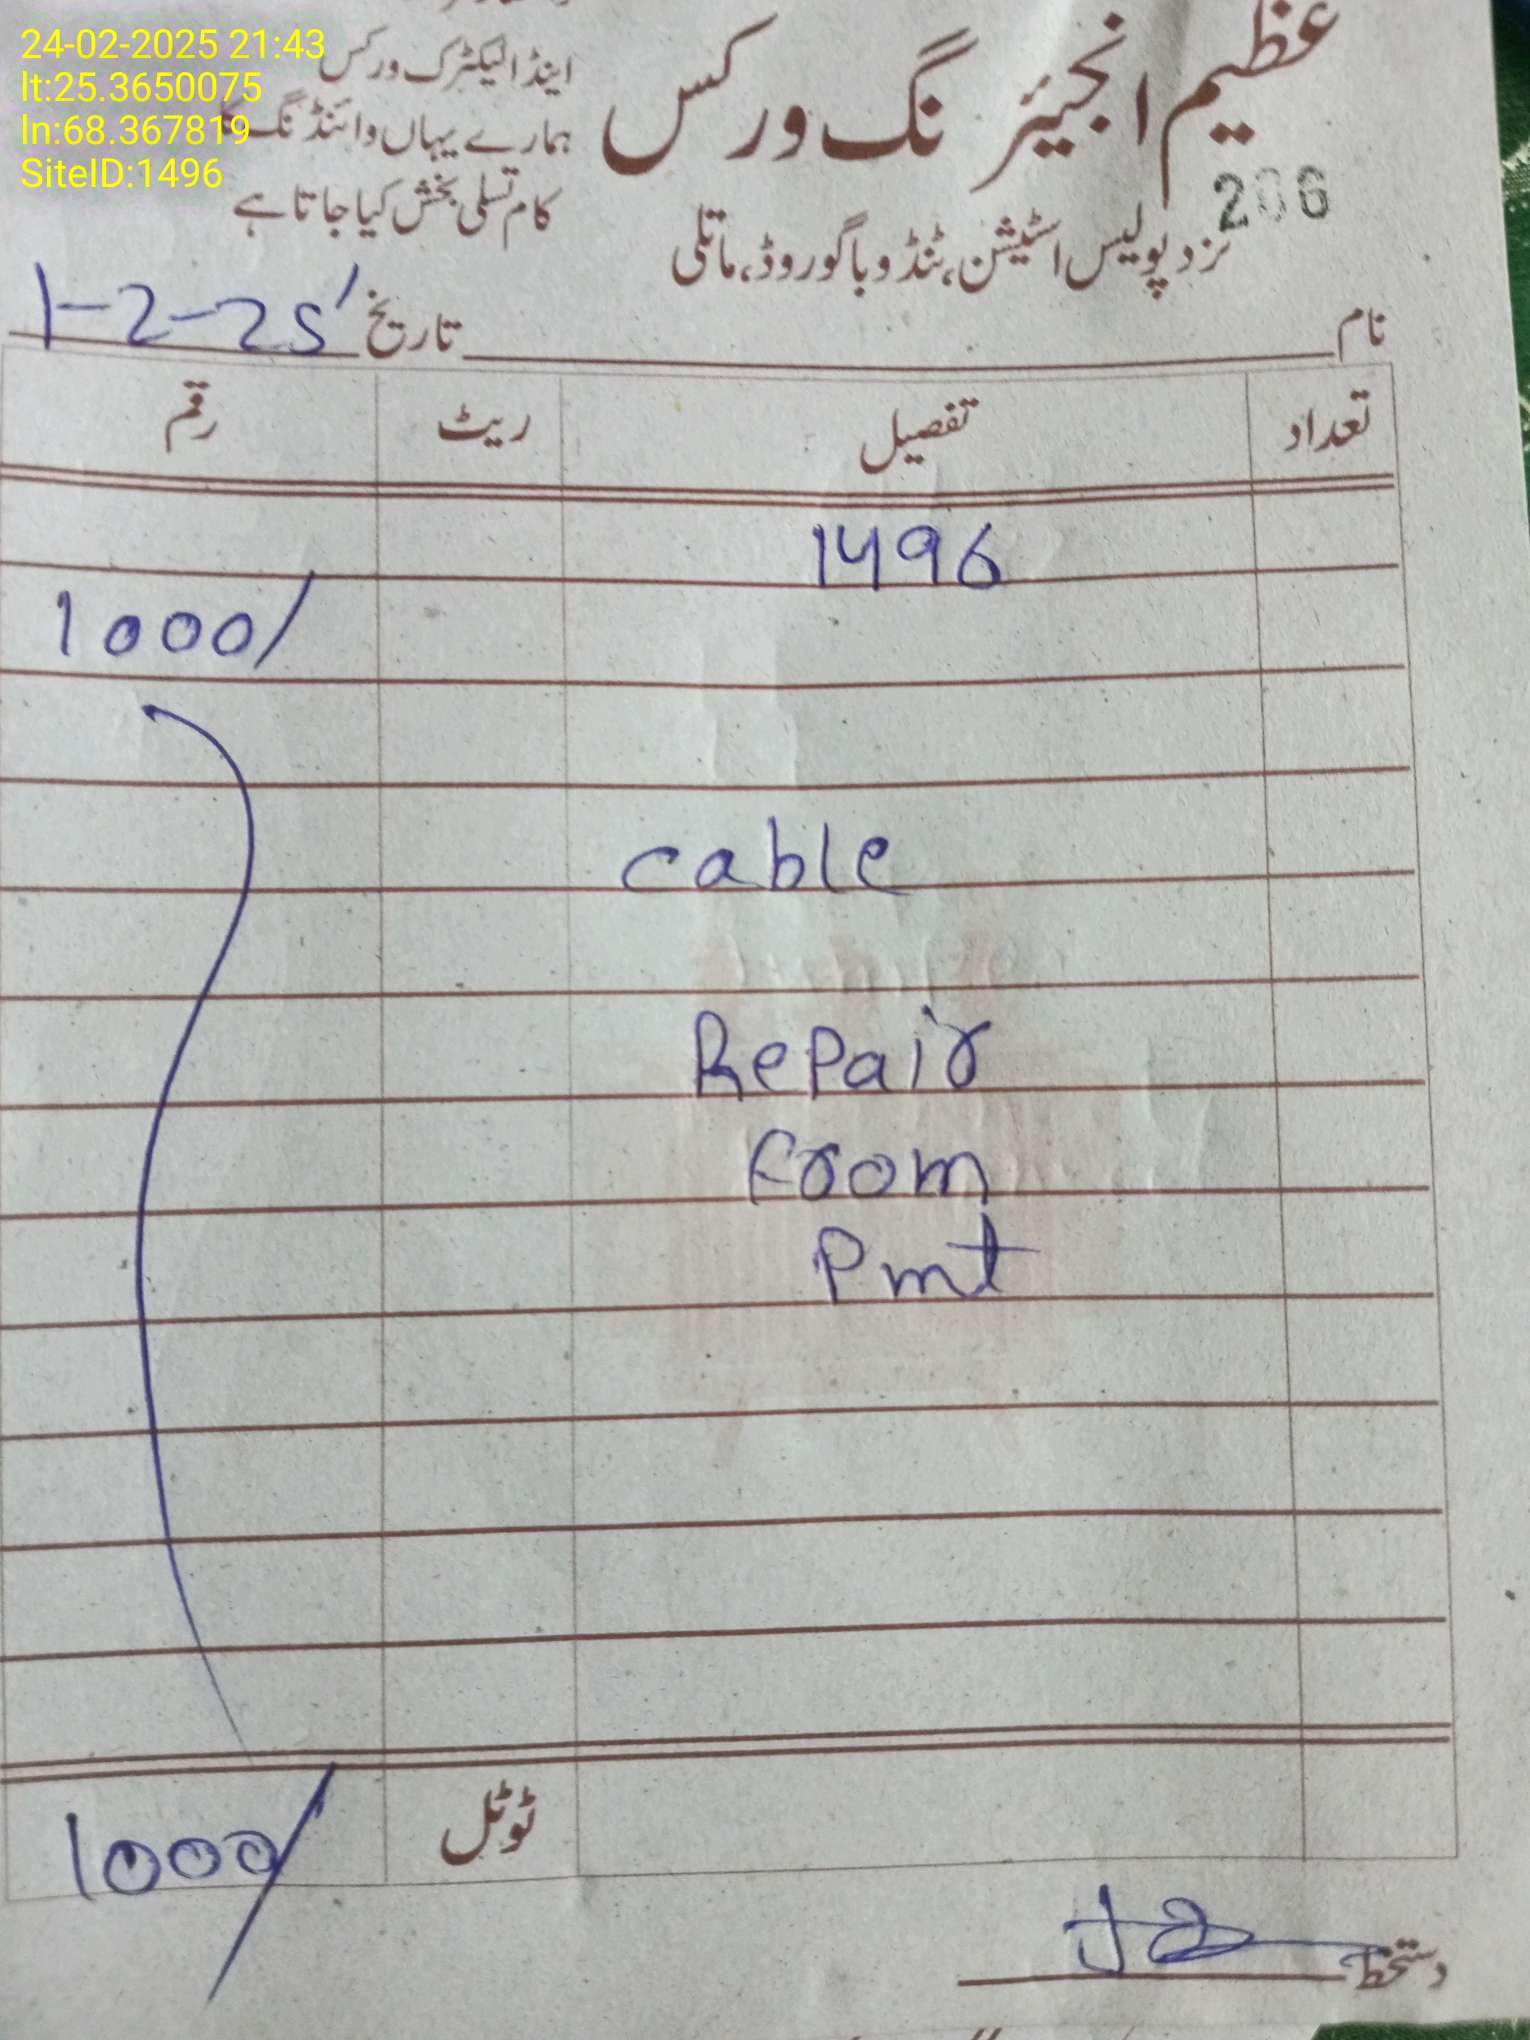 24-02-2025 21:43
lt:25.3650075
ln:68.367819
SiteID:1496
عظیم انجینئرنگ ورکس
اینڈ الیکٹرک ورکس
ہمارے یہاں وائنڈنگ کا
کام تسلی بخش کیا جاتا ہے
206
نزد پولیس اسٹیشن، ٹنڈو باگو روڈ، ماتلی
نام تاریخ 1-2-25'
تعداد تفصیل ریٹ رقم
1496
1000/
cable
Repair
From
Pmt
ٹوٹل 1000/
دستخط